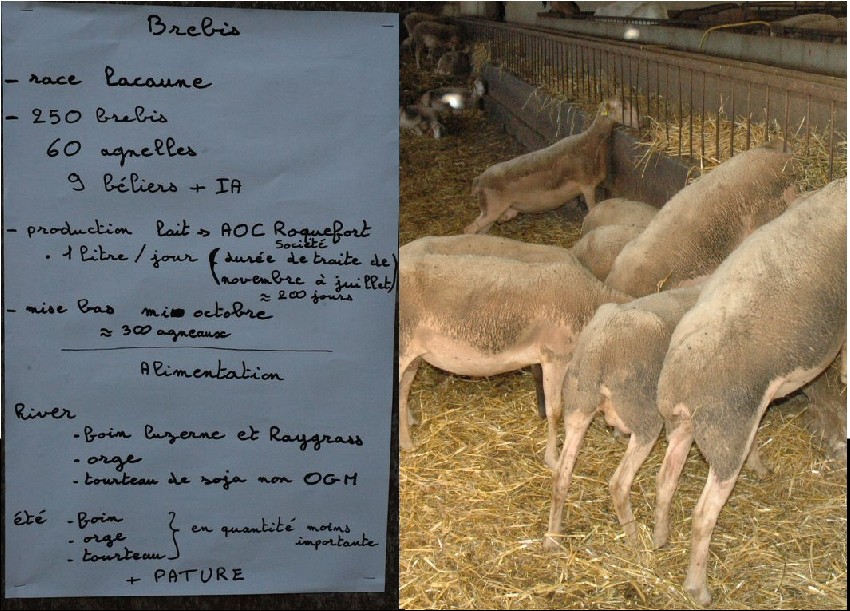 Brebis
- race Lacaune
- 250 brebis
60 agnelles
9 béliers + IA
- production lait → AOC Roquefort
Société
• 1 litre / jour (durée de traite de
novembre à juillet)
≈ 200 jours
- mise bas mi octobre
≈ 300 agneaux
Alimentation
hiver
- foin luzerne et Raygrass
- orge
- tourteau de soja non OGM
été - foin
- orge
- tourteau
} en quantité moins
importante
+ PATURE